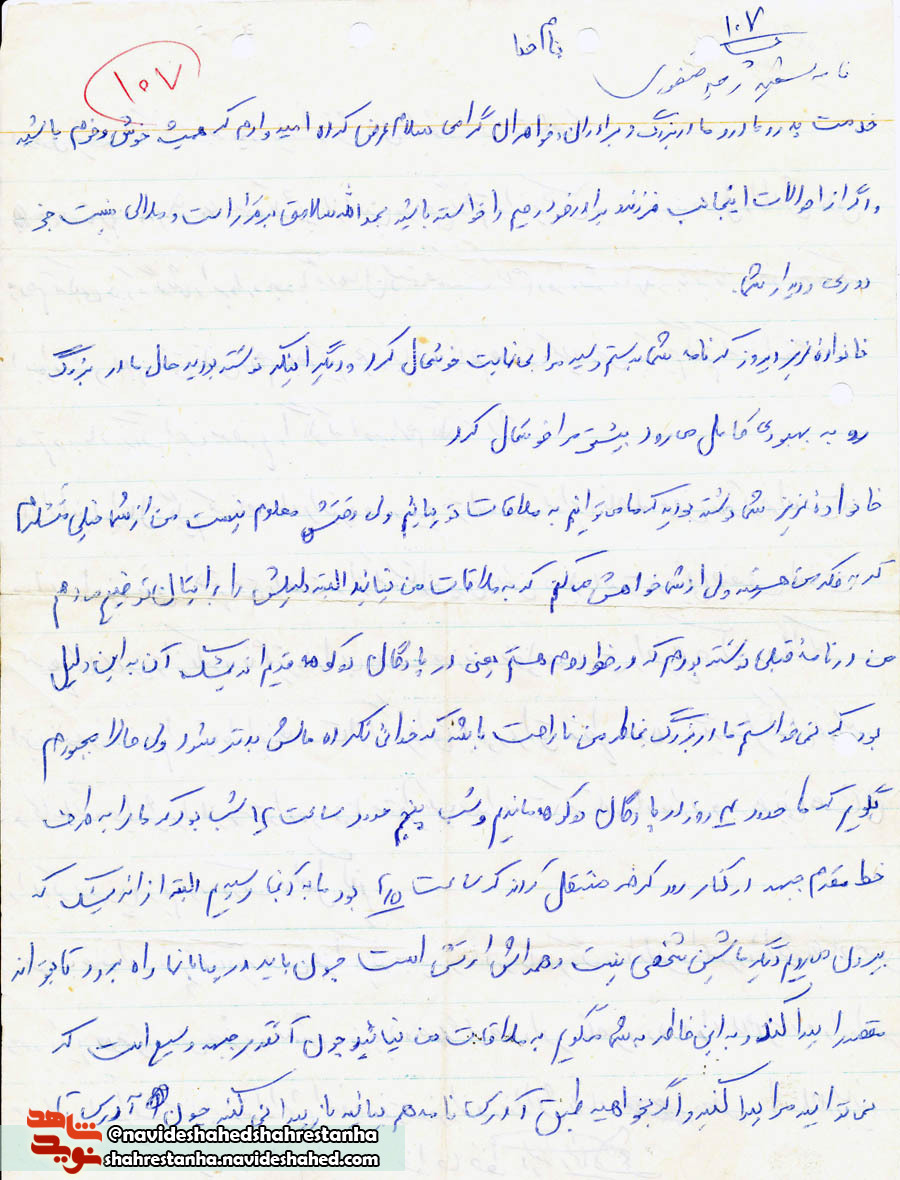 ۱۰۷
بنام خدا
نامه شهید رحیم صفوری
۱۰۷
خدمت پدر و مادر و مادربزرگ و برادران و خواهران گرامی سلام عرض کرده امیدوارم که همیشه خوش و خرم باشید
و اگر از احوالات اینجانب فرزند و برادر خود رحیم را خواسته باشید بحمدالله سلامتی برقرار است و ملالی نیست جز
دوری دیدار شما.
خانواده عزیز دیروز که نامه شما بدستم رسید مرا بی نهایت خوشحال کرد و دیگر اینکه نوشته بودید حال مادر بزرگ
رو به بهبودی کامل می رود بیشتر مرا خوشحال کرد
خانواده عزیز شما نوشته بودید که ما می توانیم به ملاقات تو بیائیم ولی وقتش معلوم نیست من از شما خیلی متشکرم
که به فکر من هستید ولی از شما خواهش می کنم که به ملاقات من نیائید البته دلیلش را برایتان توضیح میدهم
من در نامه قبلی نوشته بودم که در خط دوم هستم یعنی در پادگان دوکوهه قدیم اندیمشک آن به این دلیل
بود که نمی خواستم مادر بزرگ بخاطر من ناراحت باشد که خدائی نکرده حالش بدتر شود ولی حالا مجبورم
بگویم که ما حدود ۴ روز در پادگان دوکوهه ماندیم و شب پنجم حدود ساعت ۱۲ شب بود که ما را به طرف
خط مقدم جبهه در کنار رود کرخه منتقل کردند که ساعت ۲/۵ بود ما به آنجا رسیدیم البته از اندیمشک که
بیرون می رویم دیگر ماشین شخصی نیست و همه اش ارتش است چون باید در بیابانها راه برود تا بتواند
مقصد را پیدا کند و به این خاطر به شما میگویم به ملاقات من نیائید چون آنقدر جبهه وسیع است که
نمی توانید مرا پیدا کنید و اگر بخواهید طبق آدرس نامه هم بیائید باز پیدا نمی کنید چون آدرس
شاهد
نوید
@navideshahedshahrestanha
shahrestanha.navideshahed.com